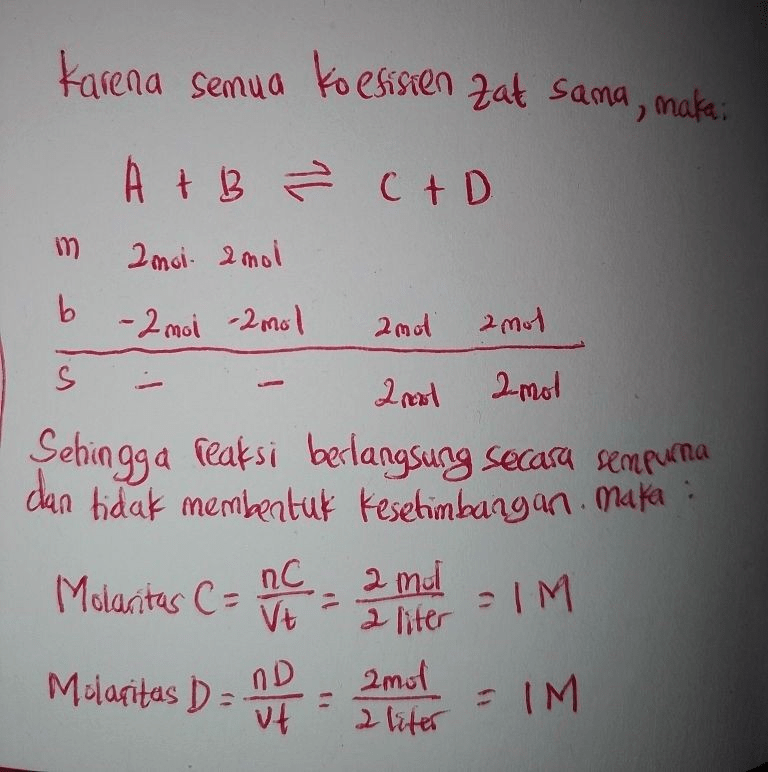 Karena semua koefisien zat sama, maka:
A + B ⇌ C + D
m 2mol. 2mol
b -2mol -2mol 2mol 2mol
s - - 2mol 2mol
Sehingga reaksi berlangsung secara sempurna
dan tidak membentuk kesetimbangan. Maka :
Molaritas C = nC/Vt = 2 mol/2 liter = 1 M
Molaritas D = nD/Vt = 2mol/2 liter = 1 M